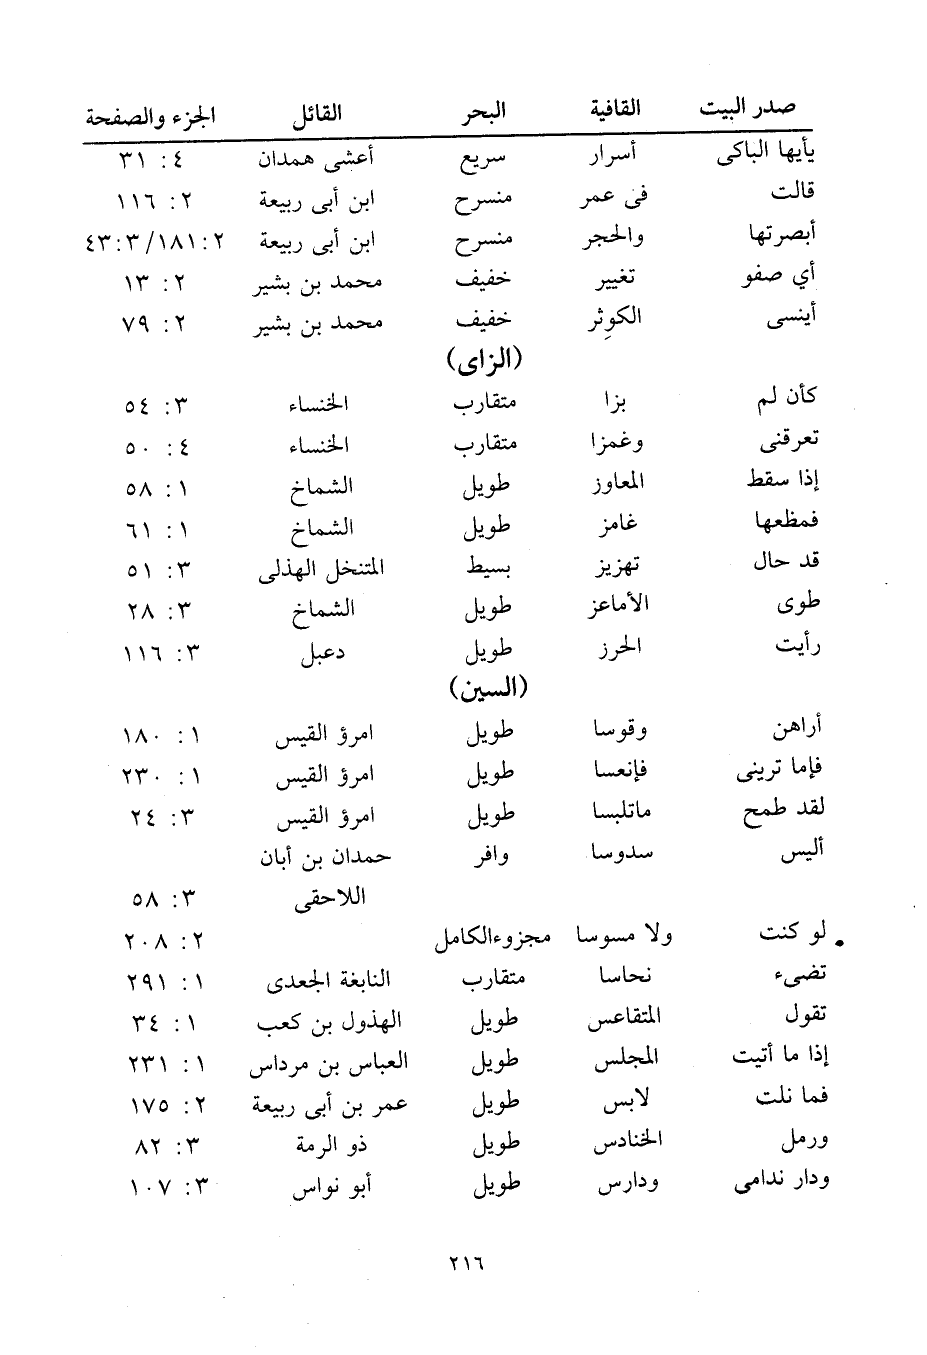 صدر البيت القافية البحر القائل الجزء والصفحة
يأيها الباكى أسرار سريع أعشى همدان ٤: ٣١
قالت فى عمر منسرح ابن أبى ربيعة ٢: ١١٦
أبصرتها والحجر منسرح ابن أبى ربيعة ٢: ١٨١/ ٣: ٤٣
أي صفو تغيير خفيف محمد بن بشير ٢: ١٣
أينسى الكوثر خفيف محمد بن بشير ٢: ٧٩
(الزاى)
كأن لم بزا متقارب الخنساء ٣: ٥٤
تعرقنى وغمزا متقارب الخنساء ٤: ٥٠
إذا سقط المعاوز طويل الشماخ ١: ٥٨
فمظعها غامز طويل الشماخ ١: ٦١
قد حال تهزيز بسيط المتنخل الهذلى ٣: ٥١
طوى الأماعز طويل الشماخ ٣: ٢٨
رأيت الحرز طويل دعبل ٣: ١١٦
(السين)
أراهن وقوسا طويل امرؤ القيس ١: ١٨٠
فإما ترينى فإنعسا طويل امرؤ القيس ١: ٢٣٠
لقد طمح ماتلبسا طويل امرؤ القيس ٣: ٢٤
أليس سدوسا وافر حمدان بن أبان
اللاحقى ٣: ٥٨
لو كنت ولا مسوسا مجزوءالكامل ٢: ٢٠٨
تضىء نحاسا متقارب النابغة الجعدى ١: ٢٩١
تقول المتقاعس طويل الهذول بن كعب ١: ٣٤
إذا ما أتيت المجلس طويل العباس بن مرداس ١: ٢٣١
فما نلت لابس طويل عمر بن أبى ربيعة ٢: ١٧٥
ورمل الخنادس طويل ذو الرمة ٣: ٨٢
ودار ندامى ودارس طويل أبو نواس ٣: ١٠٧
٢١٦